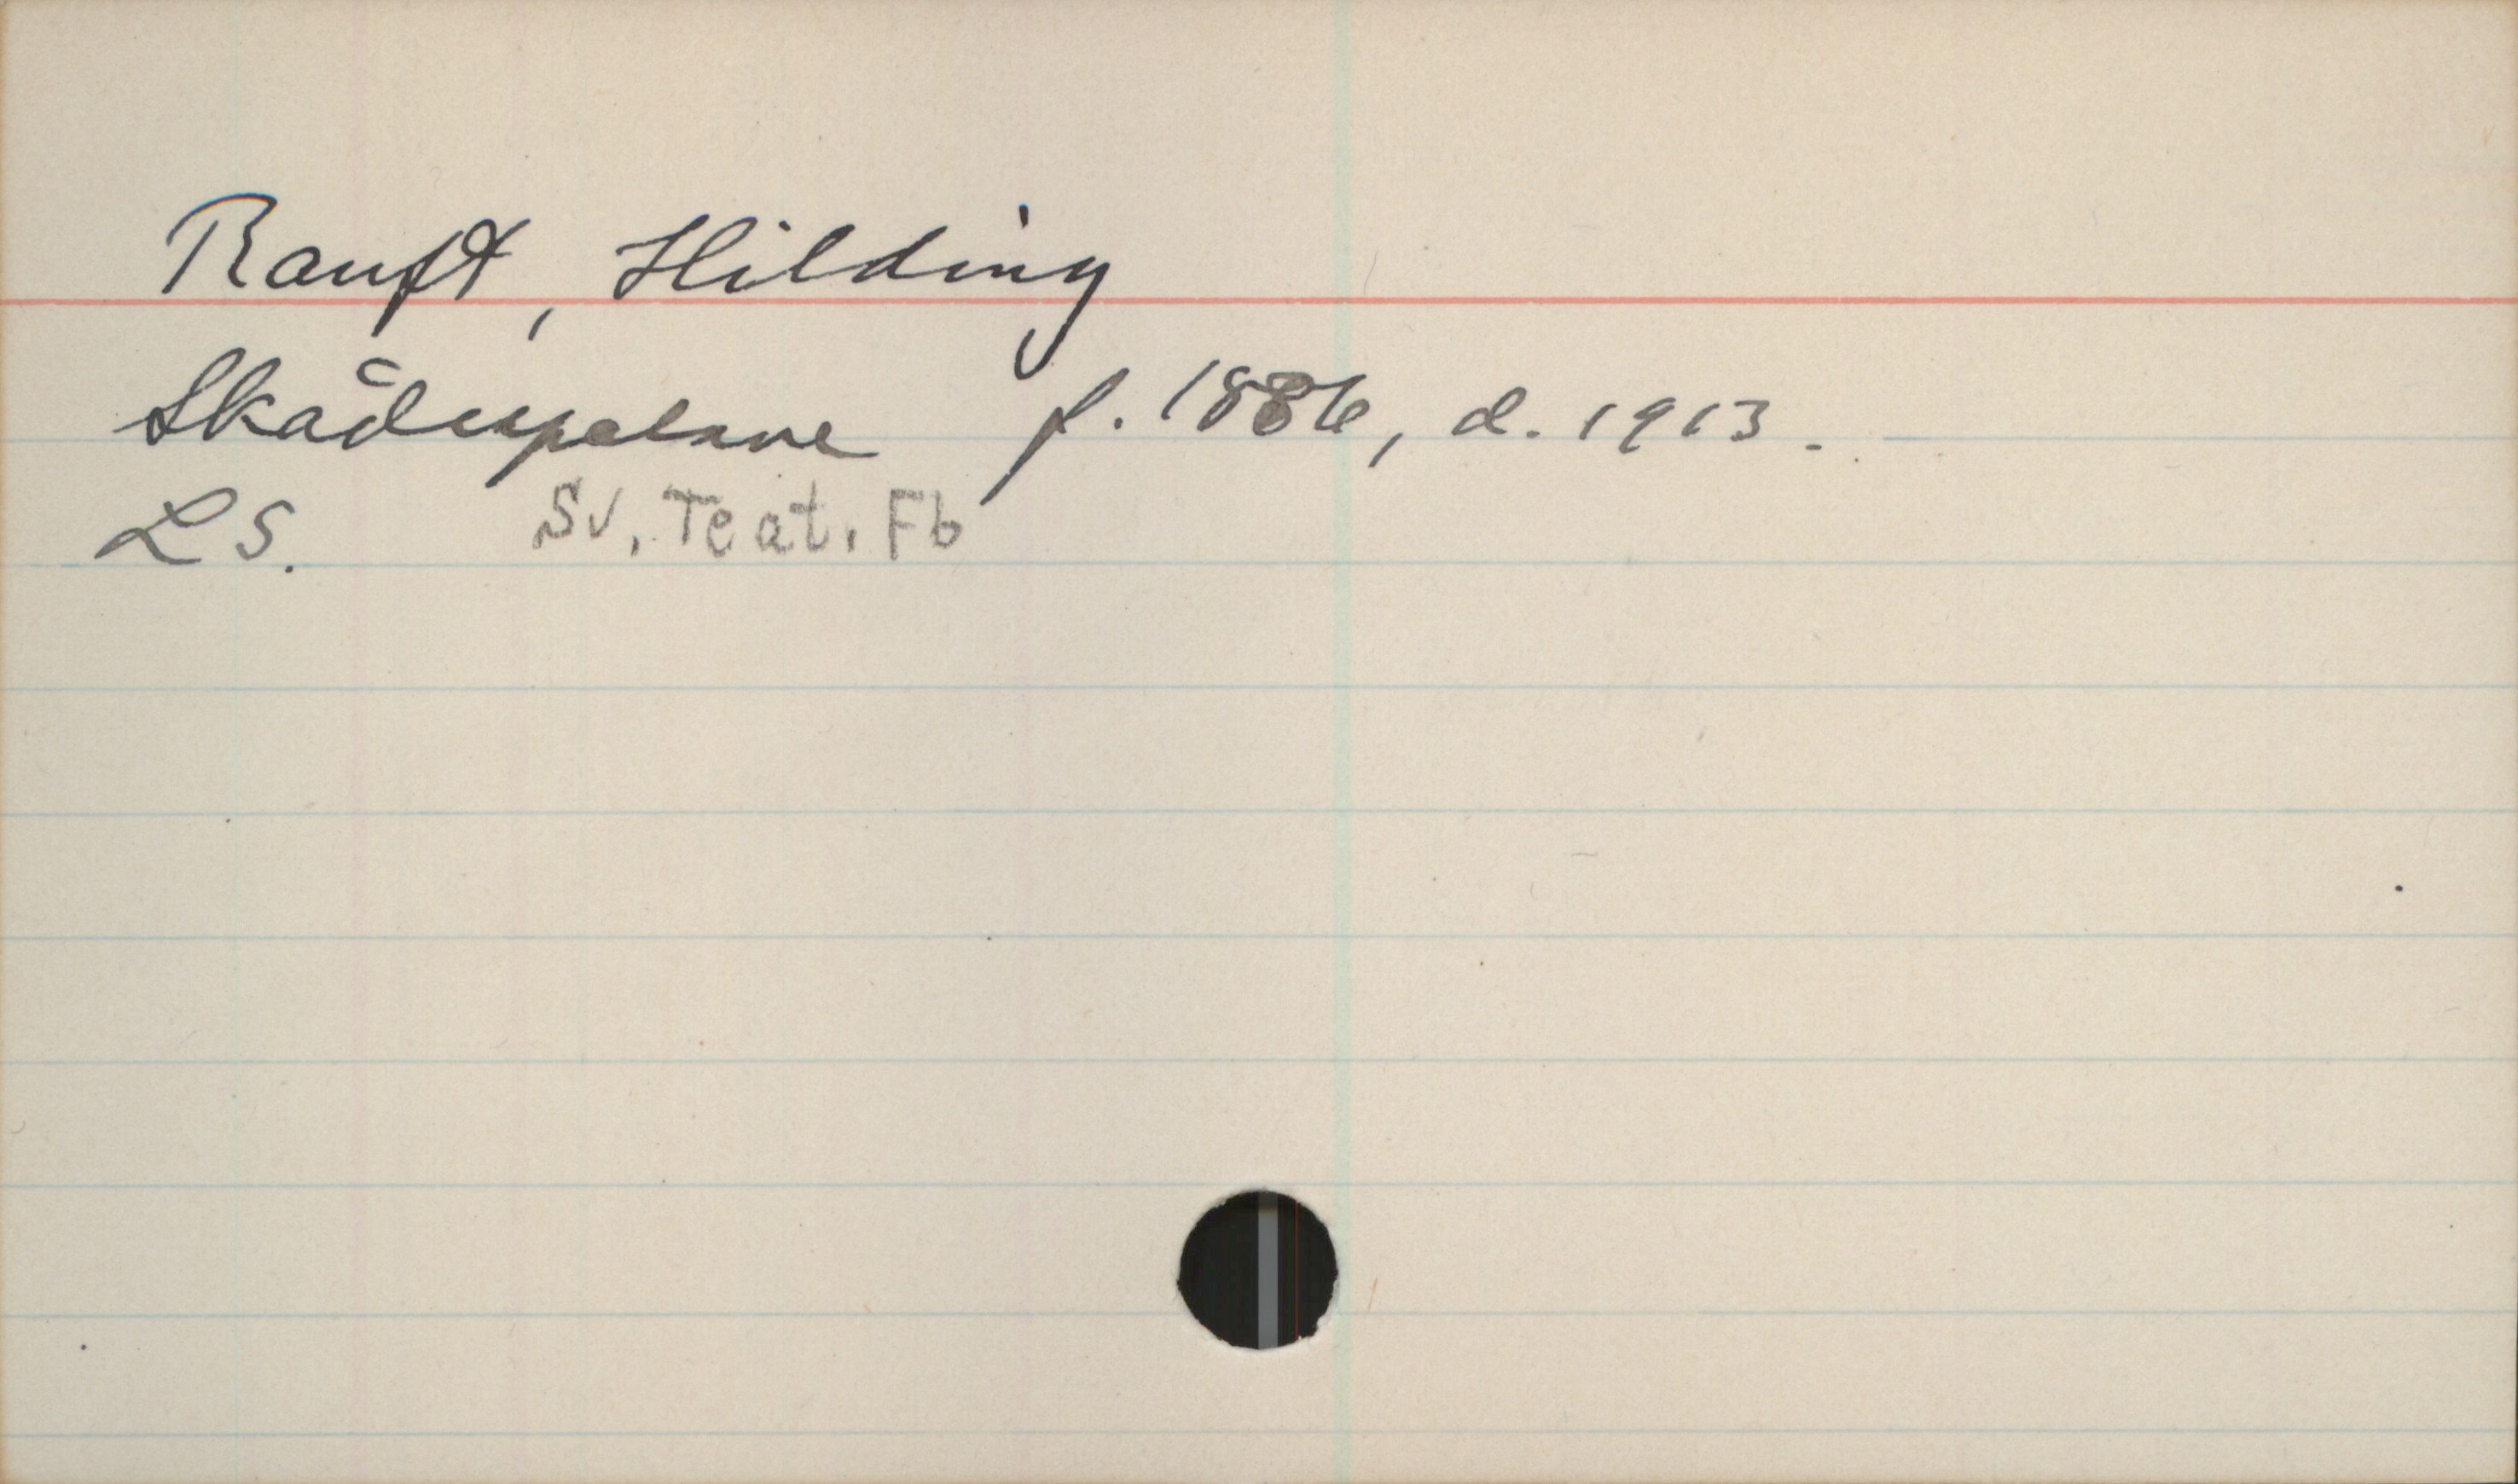 Ranft, Hilding
Skådespelare f. 1886, d. 1913.
LS. Sv. Teat. Fb